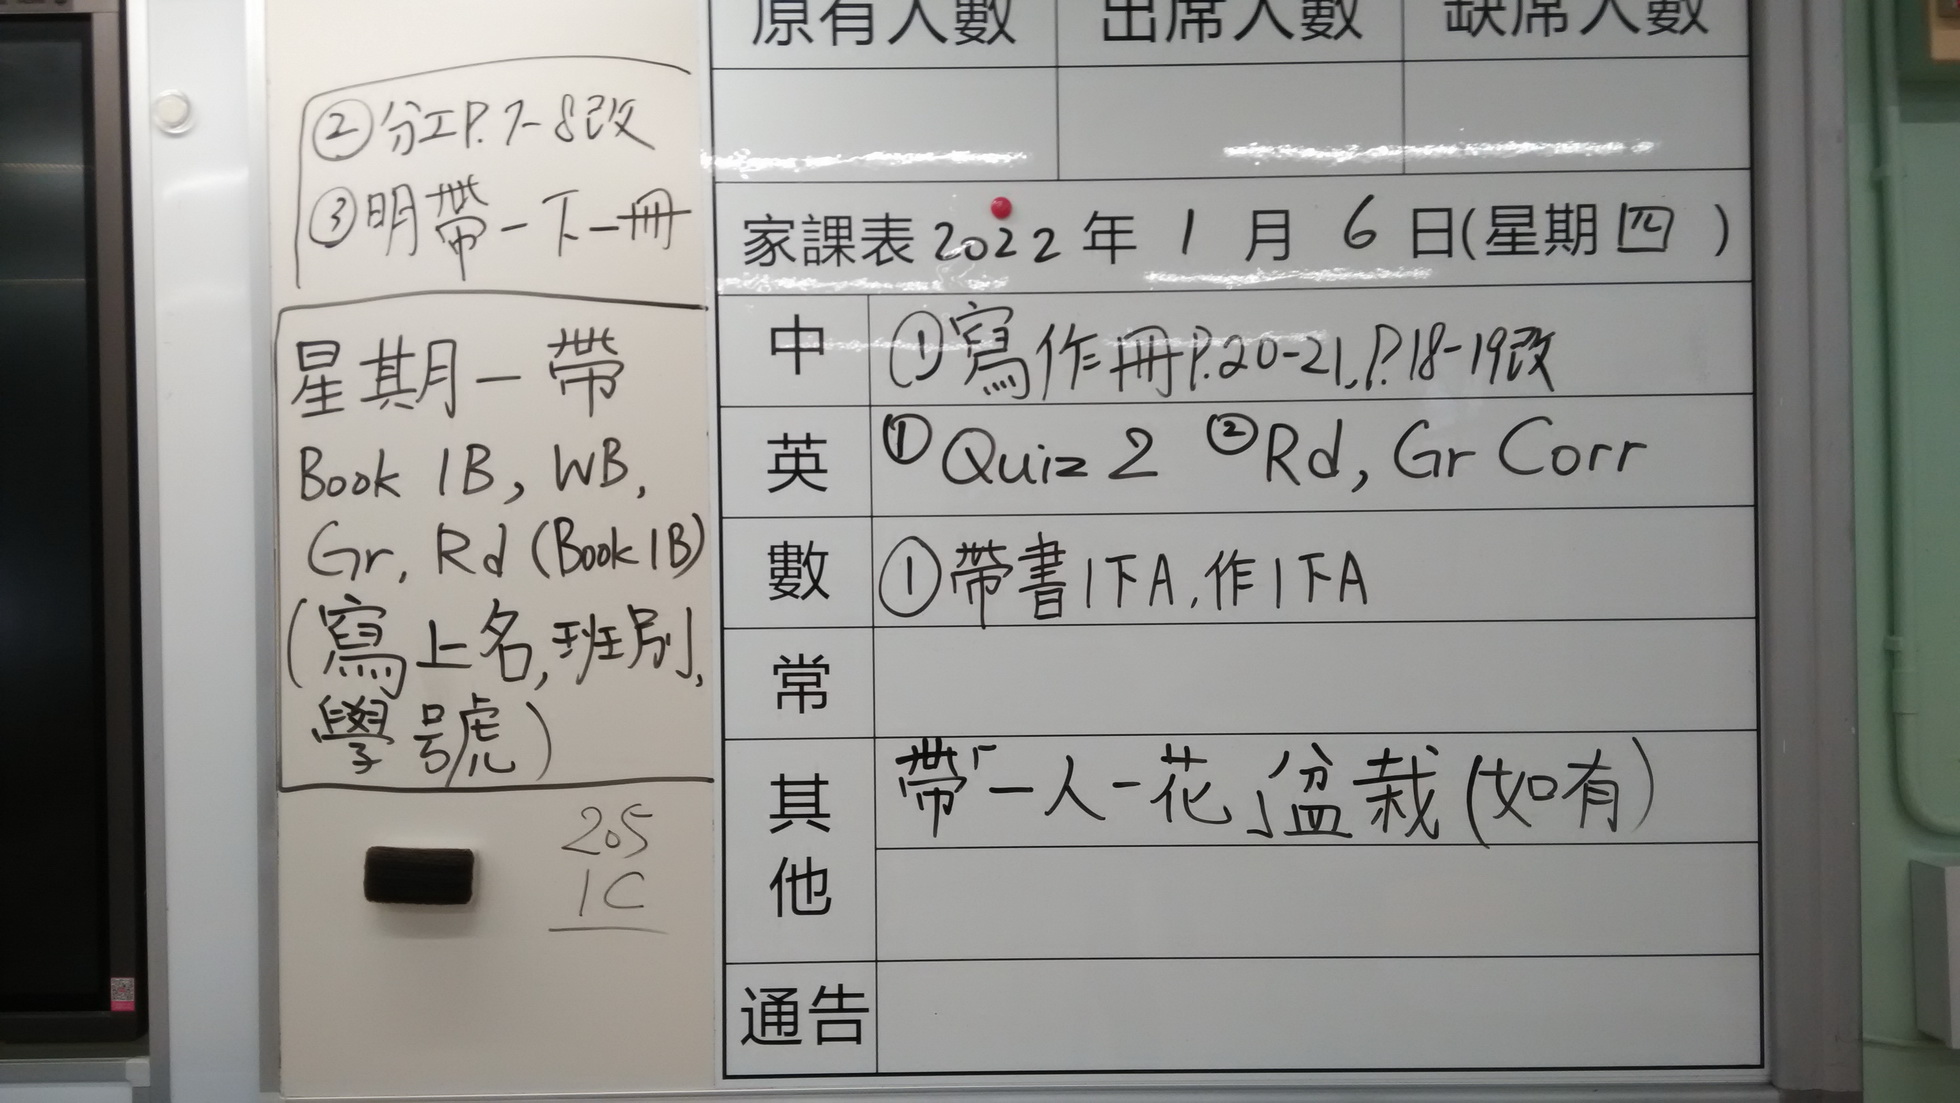 原有人數 出席人數 缺席人數
②分工P.7-8改
③明帶一下一冊
家課表2022年1月6日(星期四)
中 ①寫作冊P.20-21,P.18-19改
英 ①Quiz 2 ②Rd, Gr Corr
數 ①帶書1下A,作1下A
常
其他 帶「一人一花」盆栽(如有)
通告
星期一帶
Book 1B, WB,
Gr, Rd (Book 1B)
(寫上名,班別,
學號)
205
1C